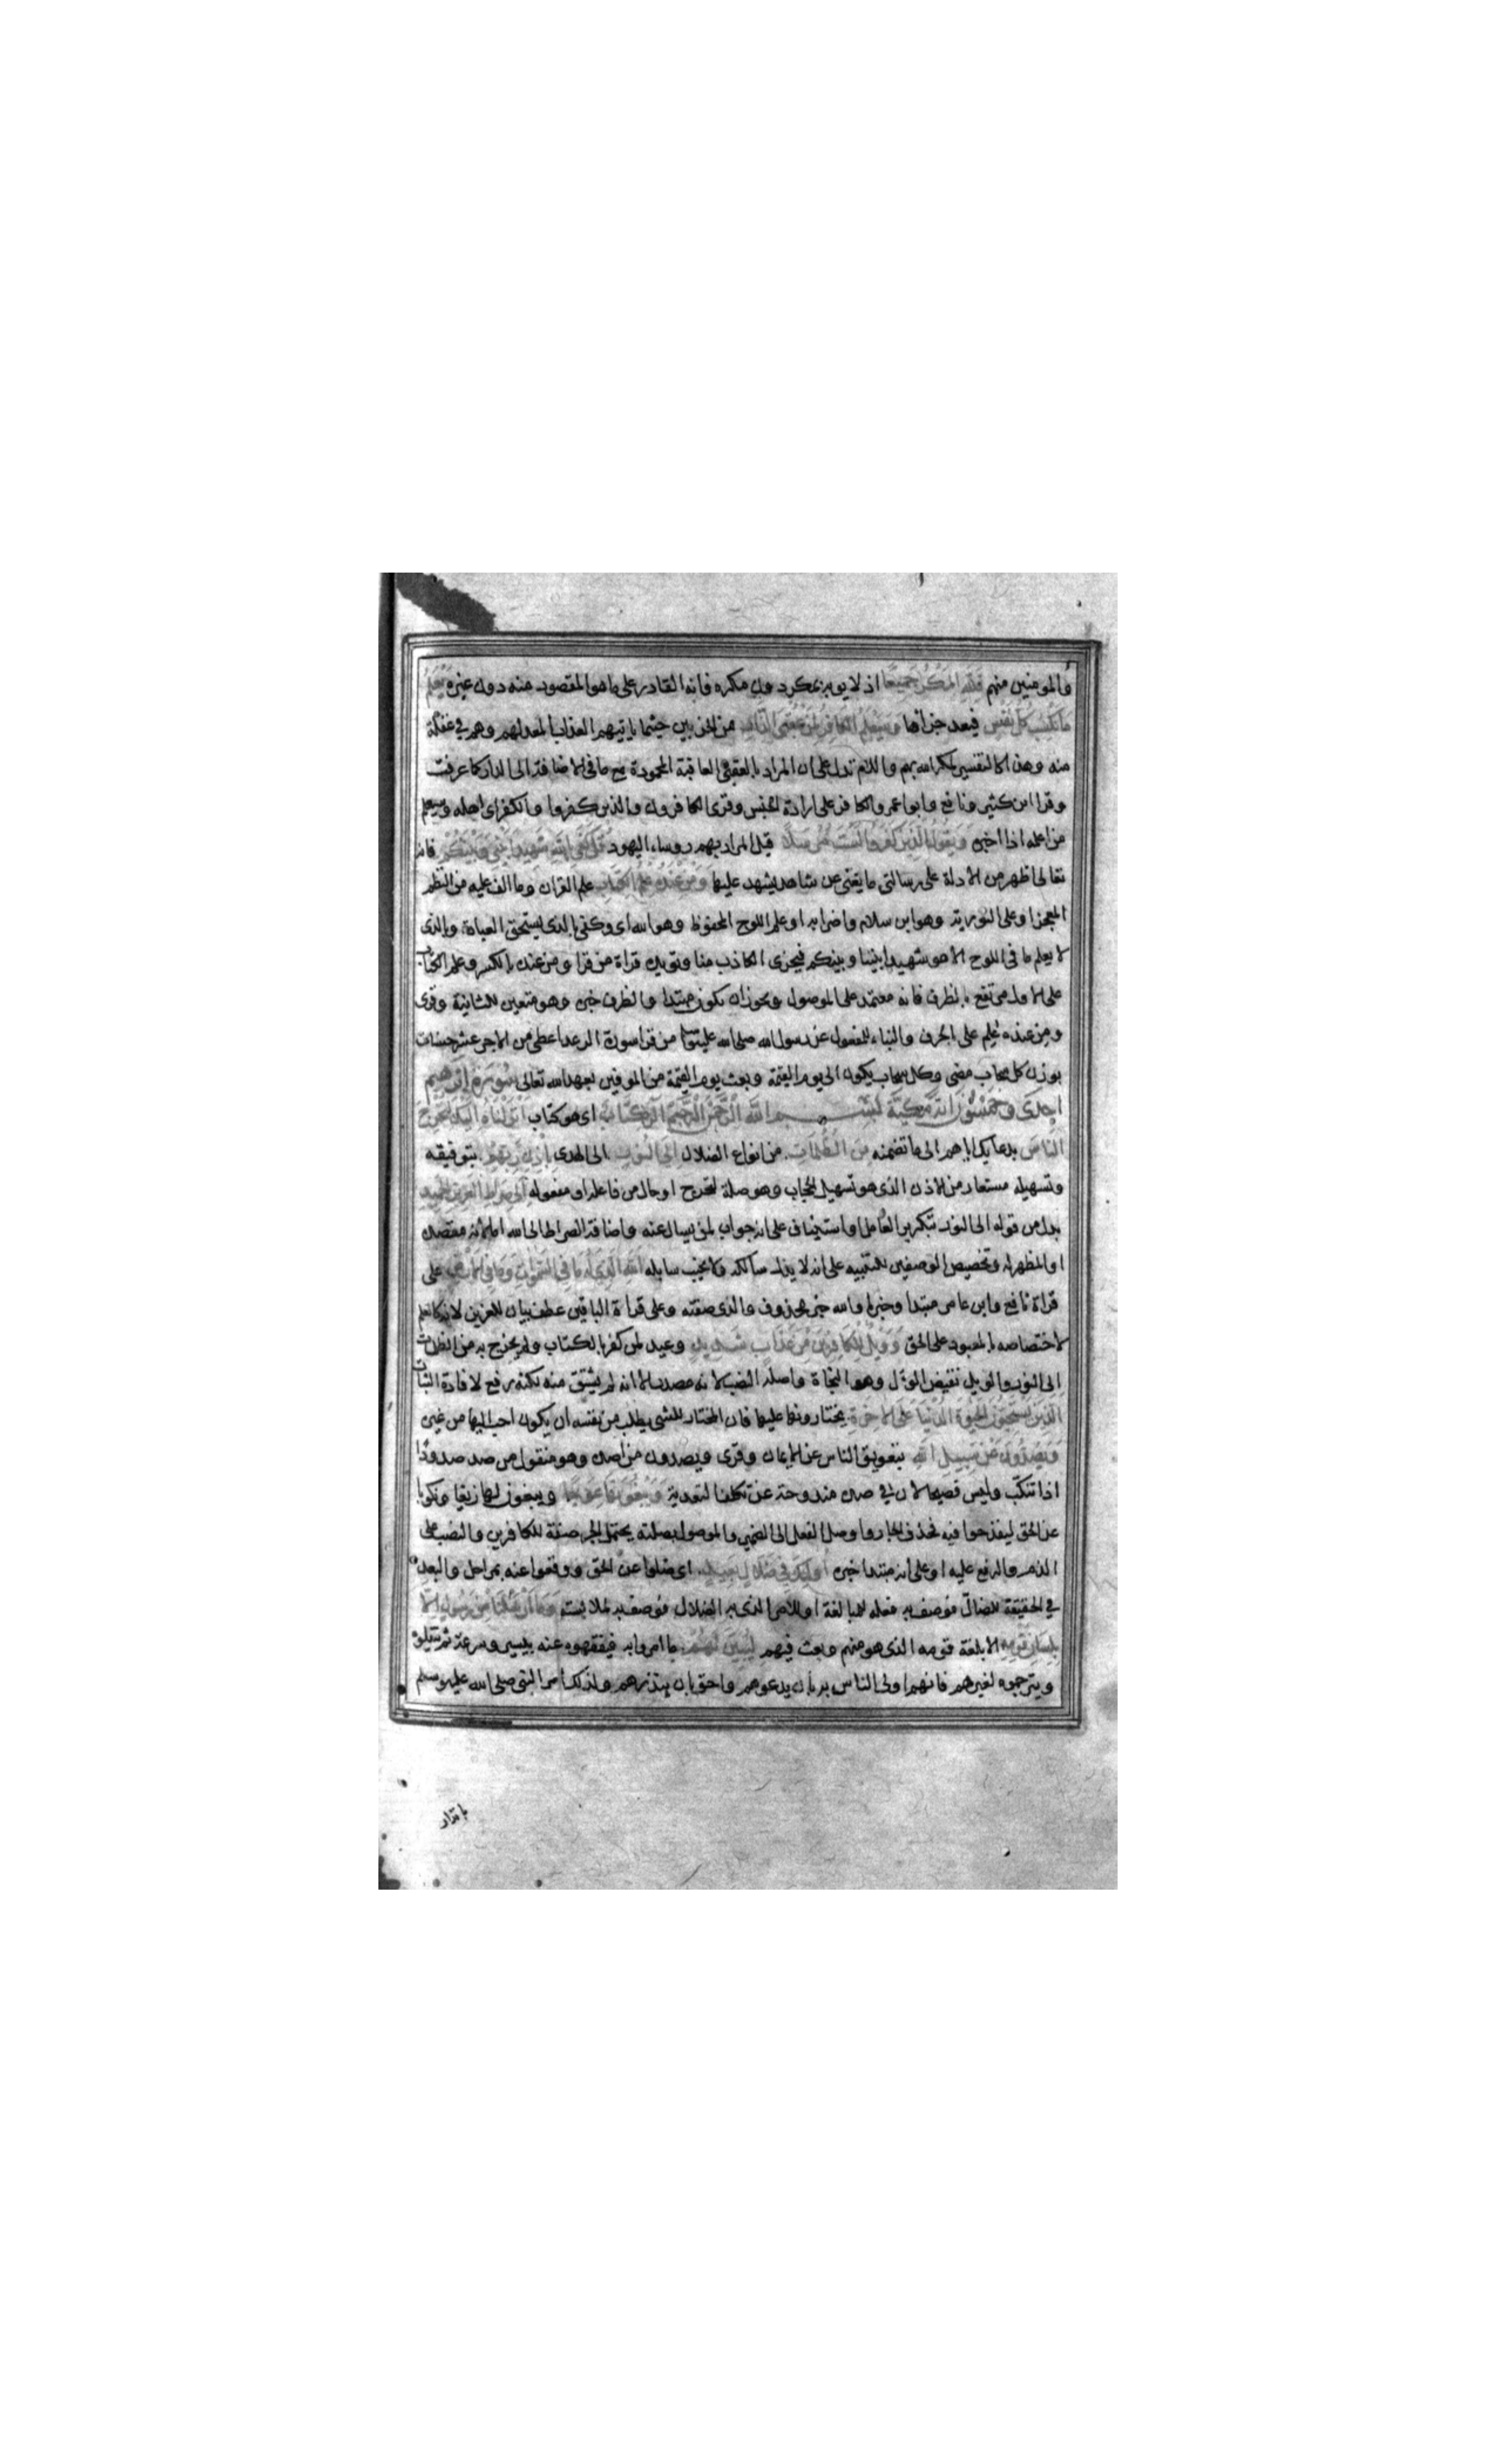 والمومنين منهم فلله المكر جميعا اذ لا يوبه بمكر دون مكره فانه القادر على ما هو المقصود منه دون غيره يعلم
ما تكسب كل نفس فيعد جزاها وسيعلم الكافر لمن عقبى الدار من الحزبين حيثما ياتيهم العذاب المعد لهم وهم في غفلة
منه وهذا كالتفسير لمكر الله بهم واللام تدل على ان المراد بالعقبى العاقبة المحمودة مع ما في الاضافة الى الدار كما عرفت
وقرا ابن كثير ونافع وابو عمرو الكافر على ارادة الجنس وقرى الكافرون والذين كفروا والكفر اى اهله وسيعلم
من اعلمه اذا اخبره ويقول الذين كفروا لست مرسلا قيل المراد بهم روساء اليهود قل كفى بالله شهيدا بيني وبينكم فانه
تعالى اظهر من الادلة على رسالتي ما يغني عن شاهد يشهد عليها ومن عنده علم الكتاب علم القران وما الف عليه من النظم
المعجز او علم التورية وهو ابن سلام واضرابه او علم اللوح المحفوظ وهو الله اى وكفى بالذي يستحق العبادة وبالذي
لا يعلم ما في اللوح الا هو شهيدا بيننا وبينكم فيخزى الكاذب منا ويويده قراة من قرا ومن عنده بالكسر وعلم الكتاب
على الاول مرتفع بالظرف فانه معتمد على الموصول ويجوز ان يكون مبتدا والظرف خبره وهو متعين للثانية وقرى
ومن عنده علم على الحرف والبناء للمفعول عن رسول الله صلى الله عليه وسلم من قرا سورة الرعد اعطى من الاجر عشر حسنات
بوزن كل سحاب مضى وكل سحاب يكون الى يوم القيمة وبعث يوم القيمة من الموفين بعهد الله تعالى سورة ابراهيم
احدى وخمسون اية مكية بسم الله الرحمن الرحيم الر كتاب اى هو كتاب انزلناه اليك لتخرج
الناس بدعايك اياهم الى ما تضمنه من الظلمات من انواع الضلال الى النور الى الهدى باذن ربهم بتوفيقه
وتسهيله مستعار من الاذن الذي هو تسهيل الحجاب وهو صلة لتخرج او حال من فاعله او مفعوله الى صراط العزيز الحميد
بدل من قوله الى النور بتكرير العامل او استيناف على انه جواب لمن يسال عنه واضافة الصراط الى الله اما لانه مقصده
او المظهر له وتخصيص الوصفين للتنبيه على انه لا يذل سالكه ولا يخيب سابله الله الذي له ما في السموات وما في الارض على
قراة نافع وابن عامر مبتدا وخبر او الله خبر محذوف والذي صفته وعلى قراة الباقين عطف بيان للعزيز لانه كالعلم
لاختصاصه بالمعبود على الحق وويل للكافرين من عذاب شديد وعيد لمن كفر بالكتاب ولم يخرج به من الظلمات
الى النور والويل نقيض الوأل وهو النجاة واصله النصب لانه مصدر الا انه لم يشتق منه لكنه رفع لافادة الثبات
الذين يستحبون الحيوة الدنيا على الاخرة يختارونها عليها فان المختار للشي يطلب من نفسه ان يكون احب اليها من غيره
ويصدون عن سبيل الله بتعويق الناس عن الايمان وقرى ويصدون من اصده وهو منقول من صد صدودا
اذا تنكب وليس فصيحا لان في صده مندوحة عن تكلف التعدية ويبغونها عوجا ويبغون لها زيغا ونكوبا
عن الحق ليقدحوا فيه فحذف الجار واوصل الفعل الى الضمير والموصول بصلته يحتمل الجر صفة للكافرين والنصب على
الذم والرفع عليه او على انه مبتدا خبره اوليك في ضلال بعيد اى ضلوا عن الحق ووقعوا عنه بمراحل والبعد
في الحقيقة للضال فوصف به فعله للمبالغة او للامر الذي به الضلال فوصف به لملابسته وما ارسلنا من رسول الا
بلسان قومه الا بلغة قومه الذي هو منهم وبعث فيهم ليبين لهم ما امروا به فيفقهوه عنه بيسر وسرعة ثم ينقلوه
ويترجموه لغيرهم فانهم اولى الناس بان يدعوهم واحق بان ينذرهم ولذلك امر النبي صلى الله عليه وسلم
بانذار